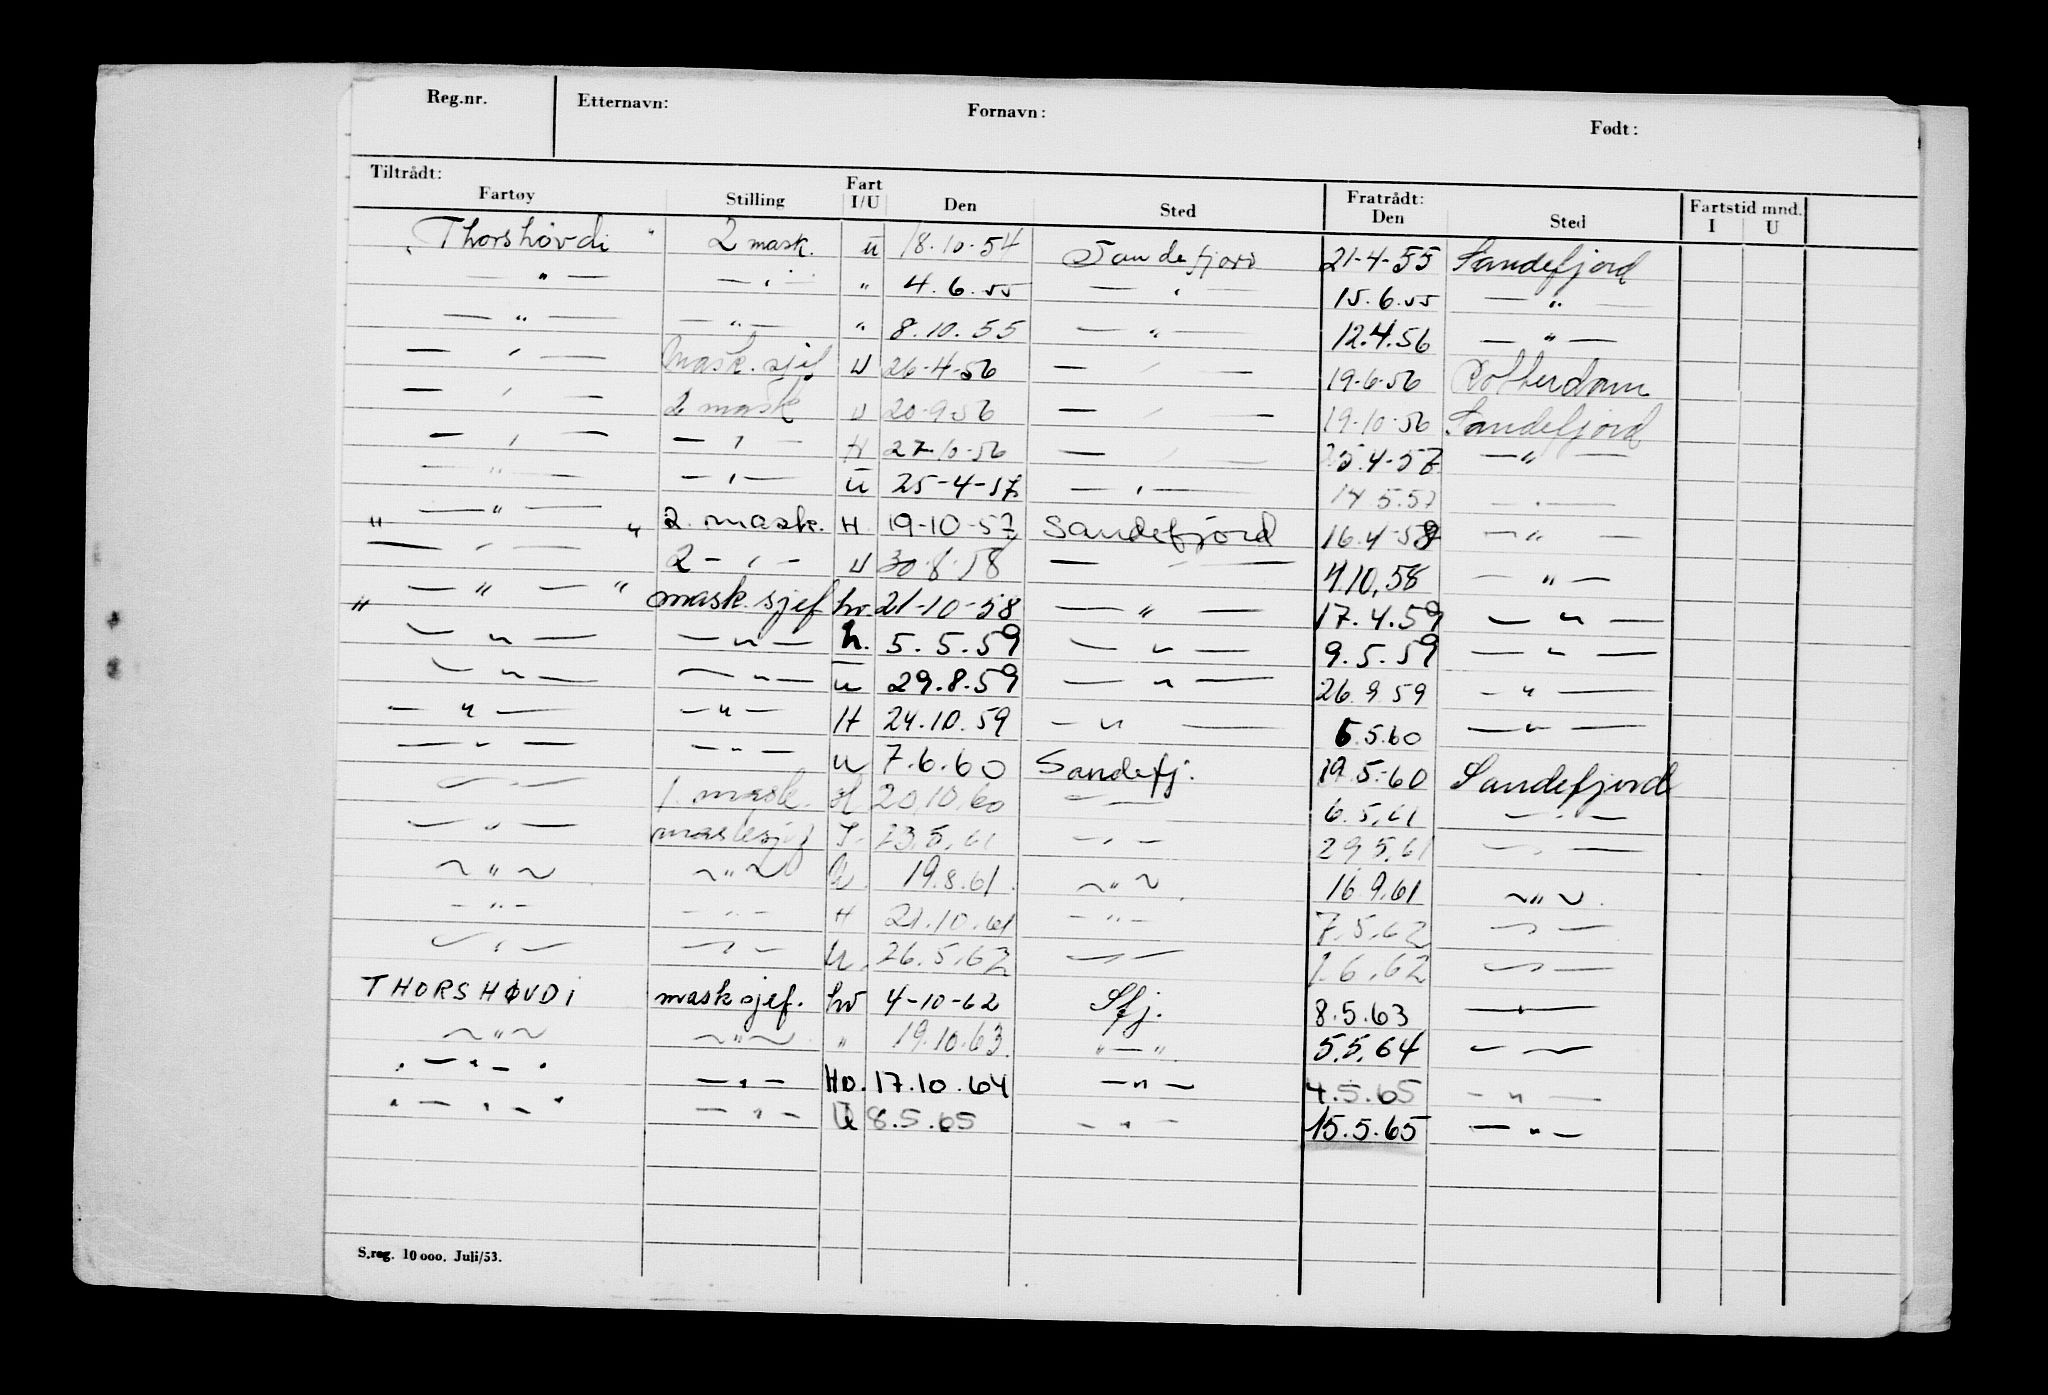 Reg.nr. Etternavn: Fornavn: Født:
Tiltrådt: Fartøy Stilling Fart I/U Den Sted Fratrådt: Den Sted Fartstid mnd. I U
"Thorshøvdi" 2 mask. u 18.10-54 Sandefjord 21-4-55 Sandefjord
— " — — " — " 4.6.55 — " — 15.6.55 — " —
— " — — " — " 8.10.55 — " — 12.4.56 — " —
— " — Mask.sjef U 26-4-56 — " — 19-6-56 Rotterdam
— " — 2 mask U 20-9-56 — " — 19-10-56 Sandefjord
— " — — " — H 27-10-56 — " — 25.4-57 — " —
— " — — " — u 25-4-57 — " — 14.5.57 — " —
" — " — " 2. mask. H. 19-10-57 Sandefjord 16.4-58 — " —
— " — 2 — " — U 30.8.58 — " — 4.10.58 — " —
" — " — " mask.sjef hv. 21-10-58 — " — 17.4.59 — " —
— " — — " — h. 5.5.59 — " — 9.5.59 — " —
— " — — " — u 29.8.59 — " — 26.9.59 — " —
— " — — " — H 24.10.59 — " — 5.5.60 — " —
— " — — " — u 7.6.60 Sandefj. 19.5.-60 Sandefjord
— " — 1. mask. H 20.10.60 — " — 6.5.61 — " —
— " — masksjef 23.5.61 — " — 29.5.61 — " —
— " — — " — U. 19.8.61. — " — 16.9.61 — " —
— " — — " — H 21.10.61 — " — 7.5.62 — " —
— " — — " — U. 26.5.62 — " — 1.6.62 — " —
THORSHØVDI masksjef. hv 4-10-62 Sfj. 8.5.63 — " —
— " — — " — " 19.10.63. " — " 5.5.64 — " —
" — " — " — " — HV. 17.10.64 — " — 4.5.65 — " —
" — " — " — " — U 8.5.65 — " — 15.5.65 — " —
S.reg. 10 000. Juli/53.